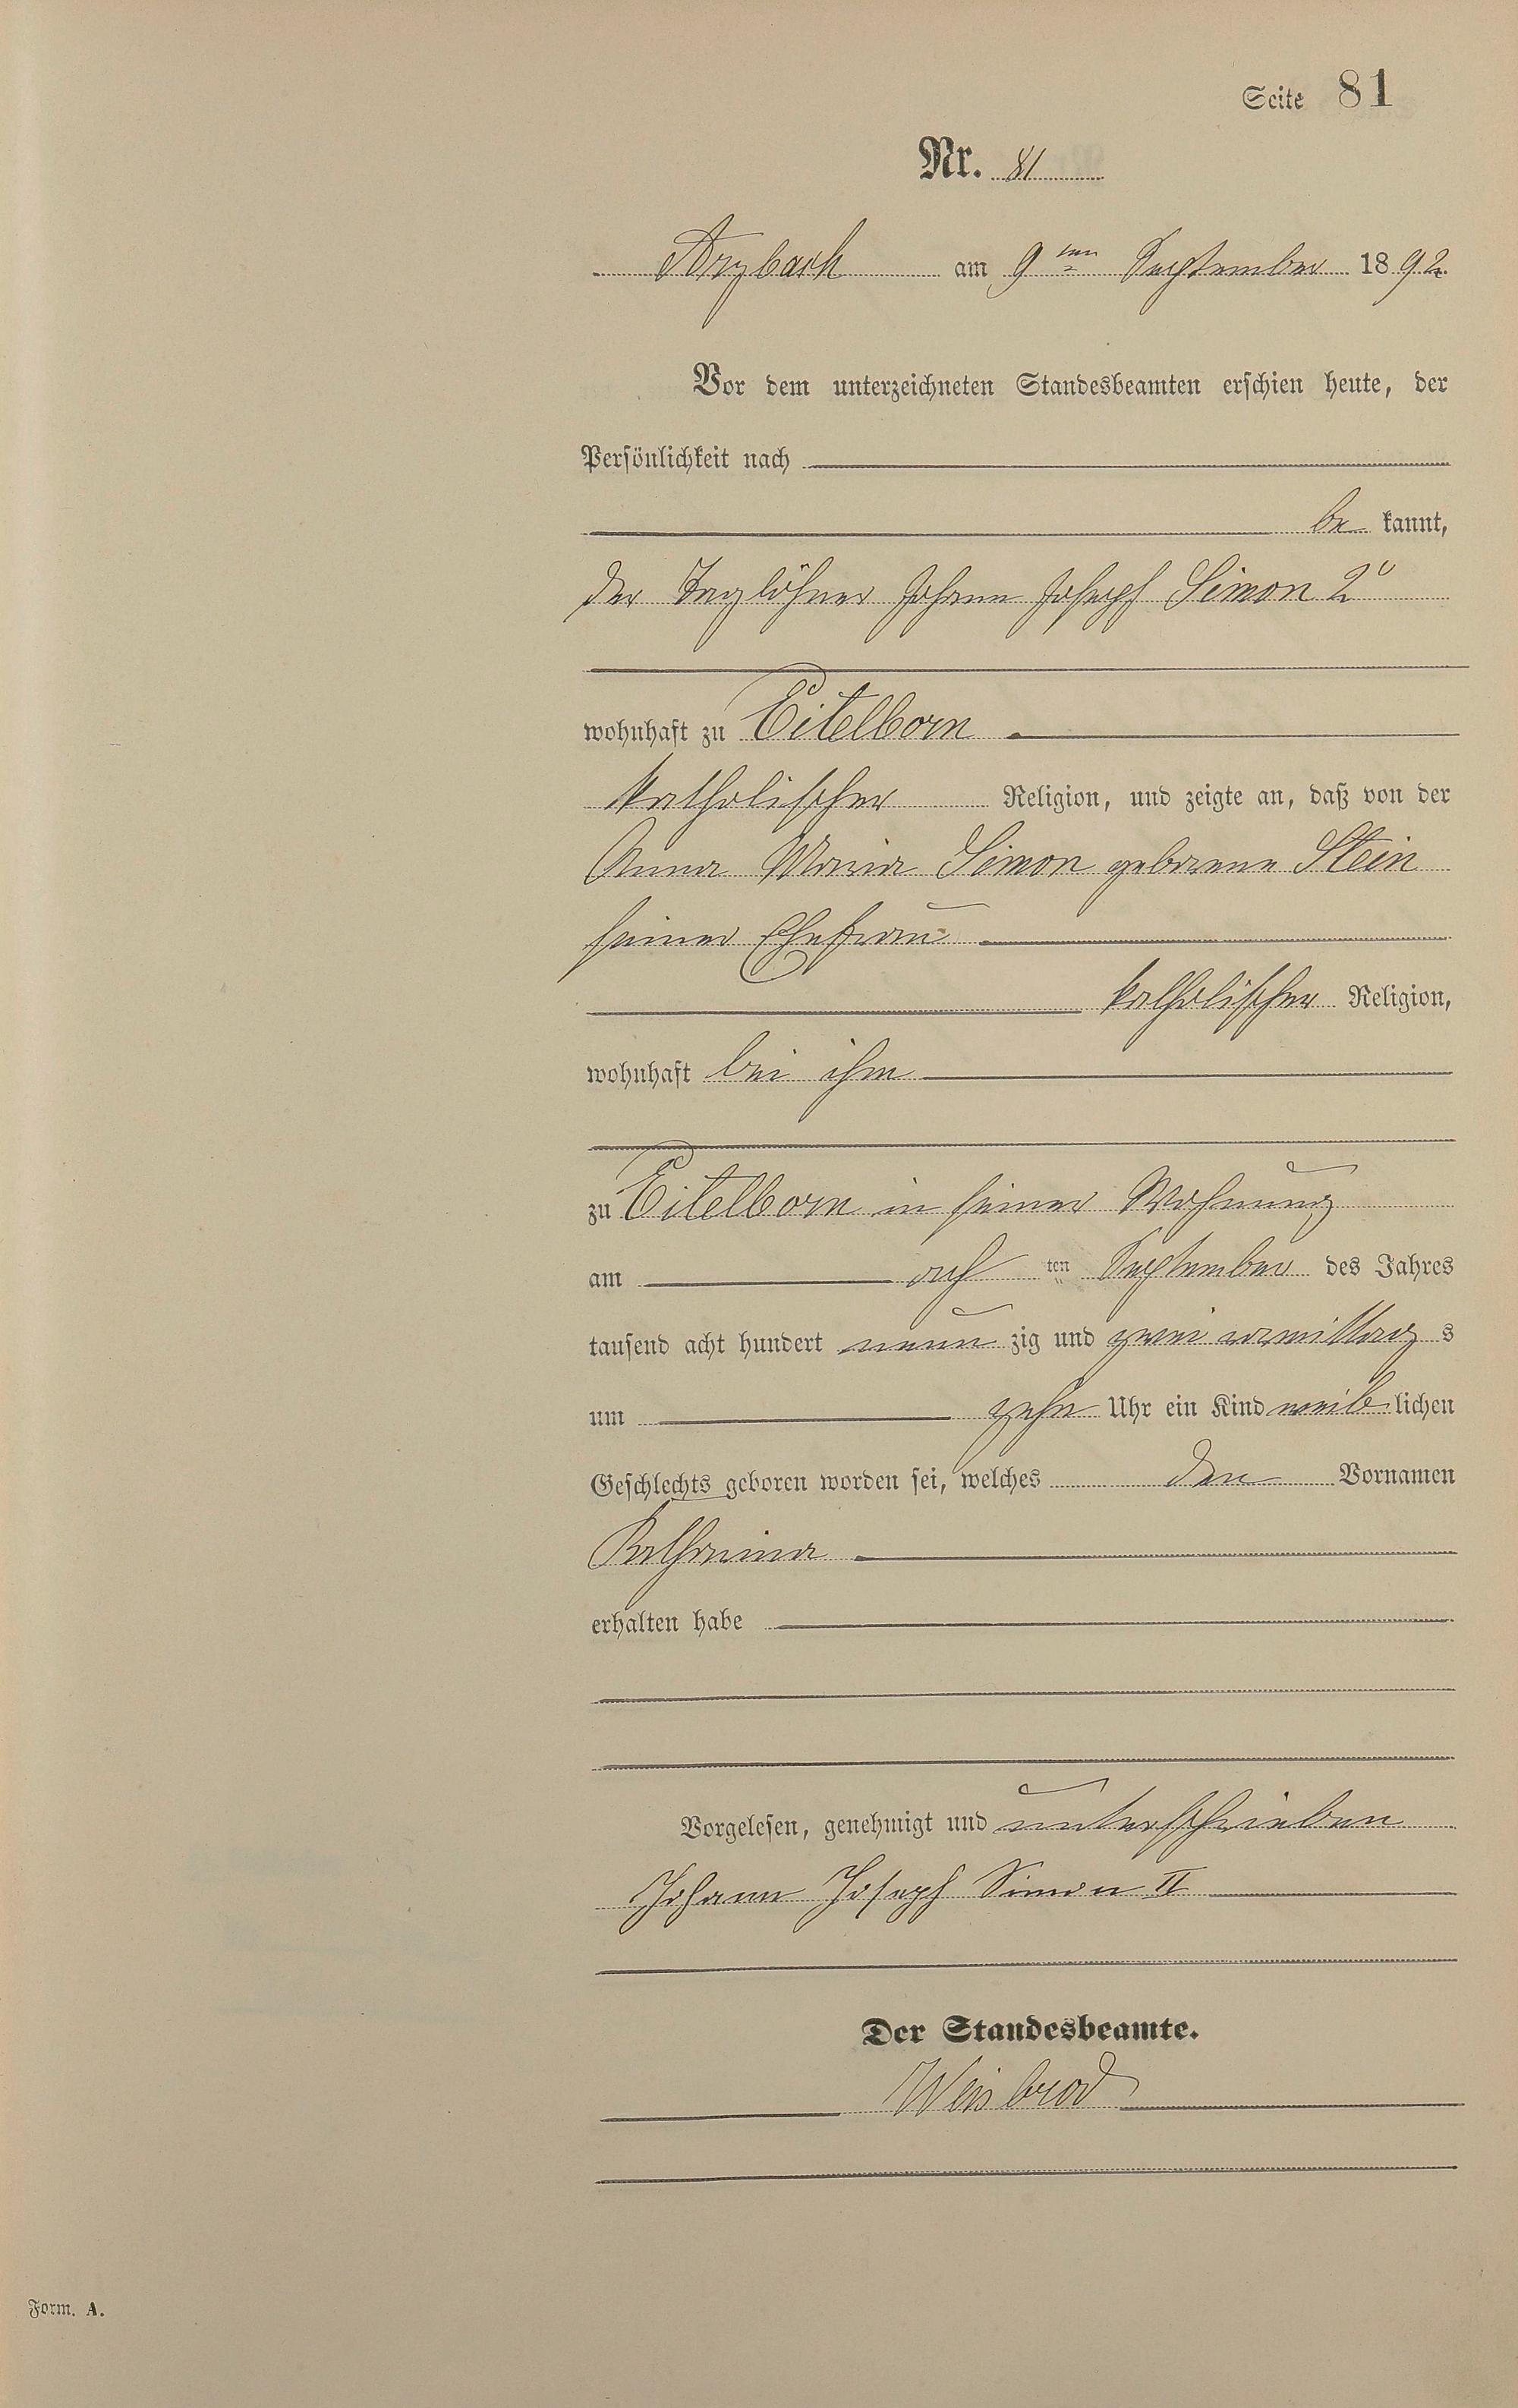 Seite 81
Nr. 81
Arzbach am 9ten September 1892.
Vor dem unterzeichneten Standesbeamten erschien heute, der
Persönlichkeit nach
be kannt,
der Taglöhner Johann Joseph Simon 2r
wohnhaft zu Eitelborn
katholischer Religion, und zeigte an, daß von der
Anna Maria Simon geborene Stein
seiner Ehefrau
katholischer Religion,
wohnhaft bei ihm
zu Eitelborn in seiner Wohnung
am ach ten September des Jahres
tausend acht hundert neun zig und zwei vormittag s
um zehn Uhr ein Kind weib lichen
Geschlechts geboren worden sei, welches den Vornamen
Katharina
erhalten habe
Vorgelesen, genehmigt und unterschrieben
Johann Joseph Simon II
Der Standesbeamte.
Weisbrod
Form. A.